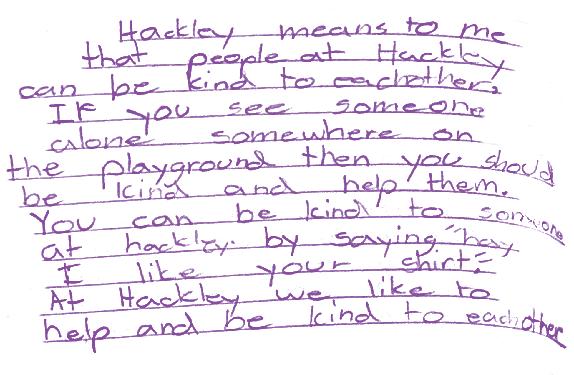 Hackley means to me
that people at Hackley
can be kind to eachother.
If you see someone
alone somewhere on
the playground then you shoud
be kind and help them.
You can be kind to somone
at hackley. by saying "hay
I like your shirt."
At Hackley we like to
help and be kind to eachother